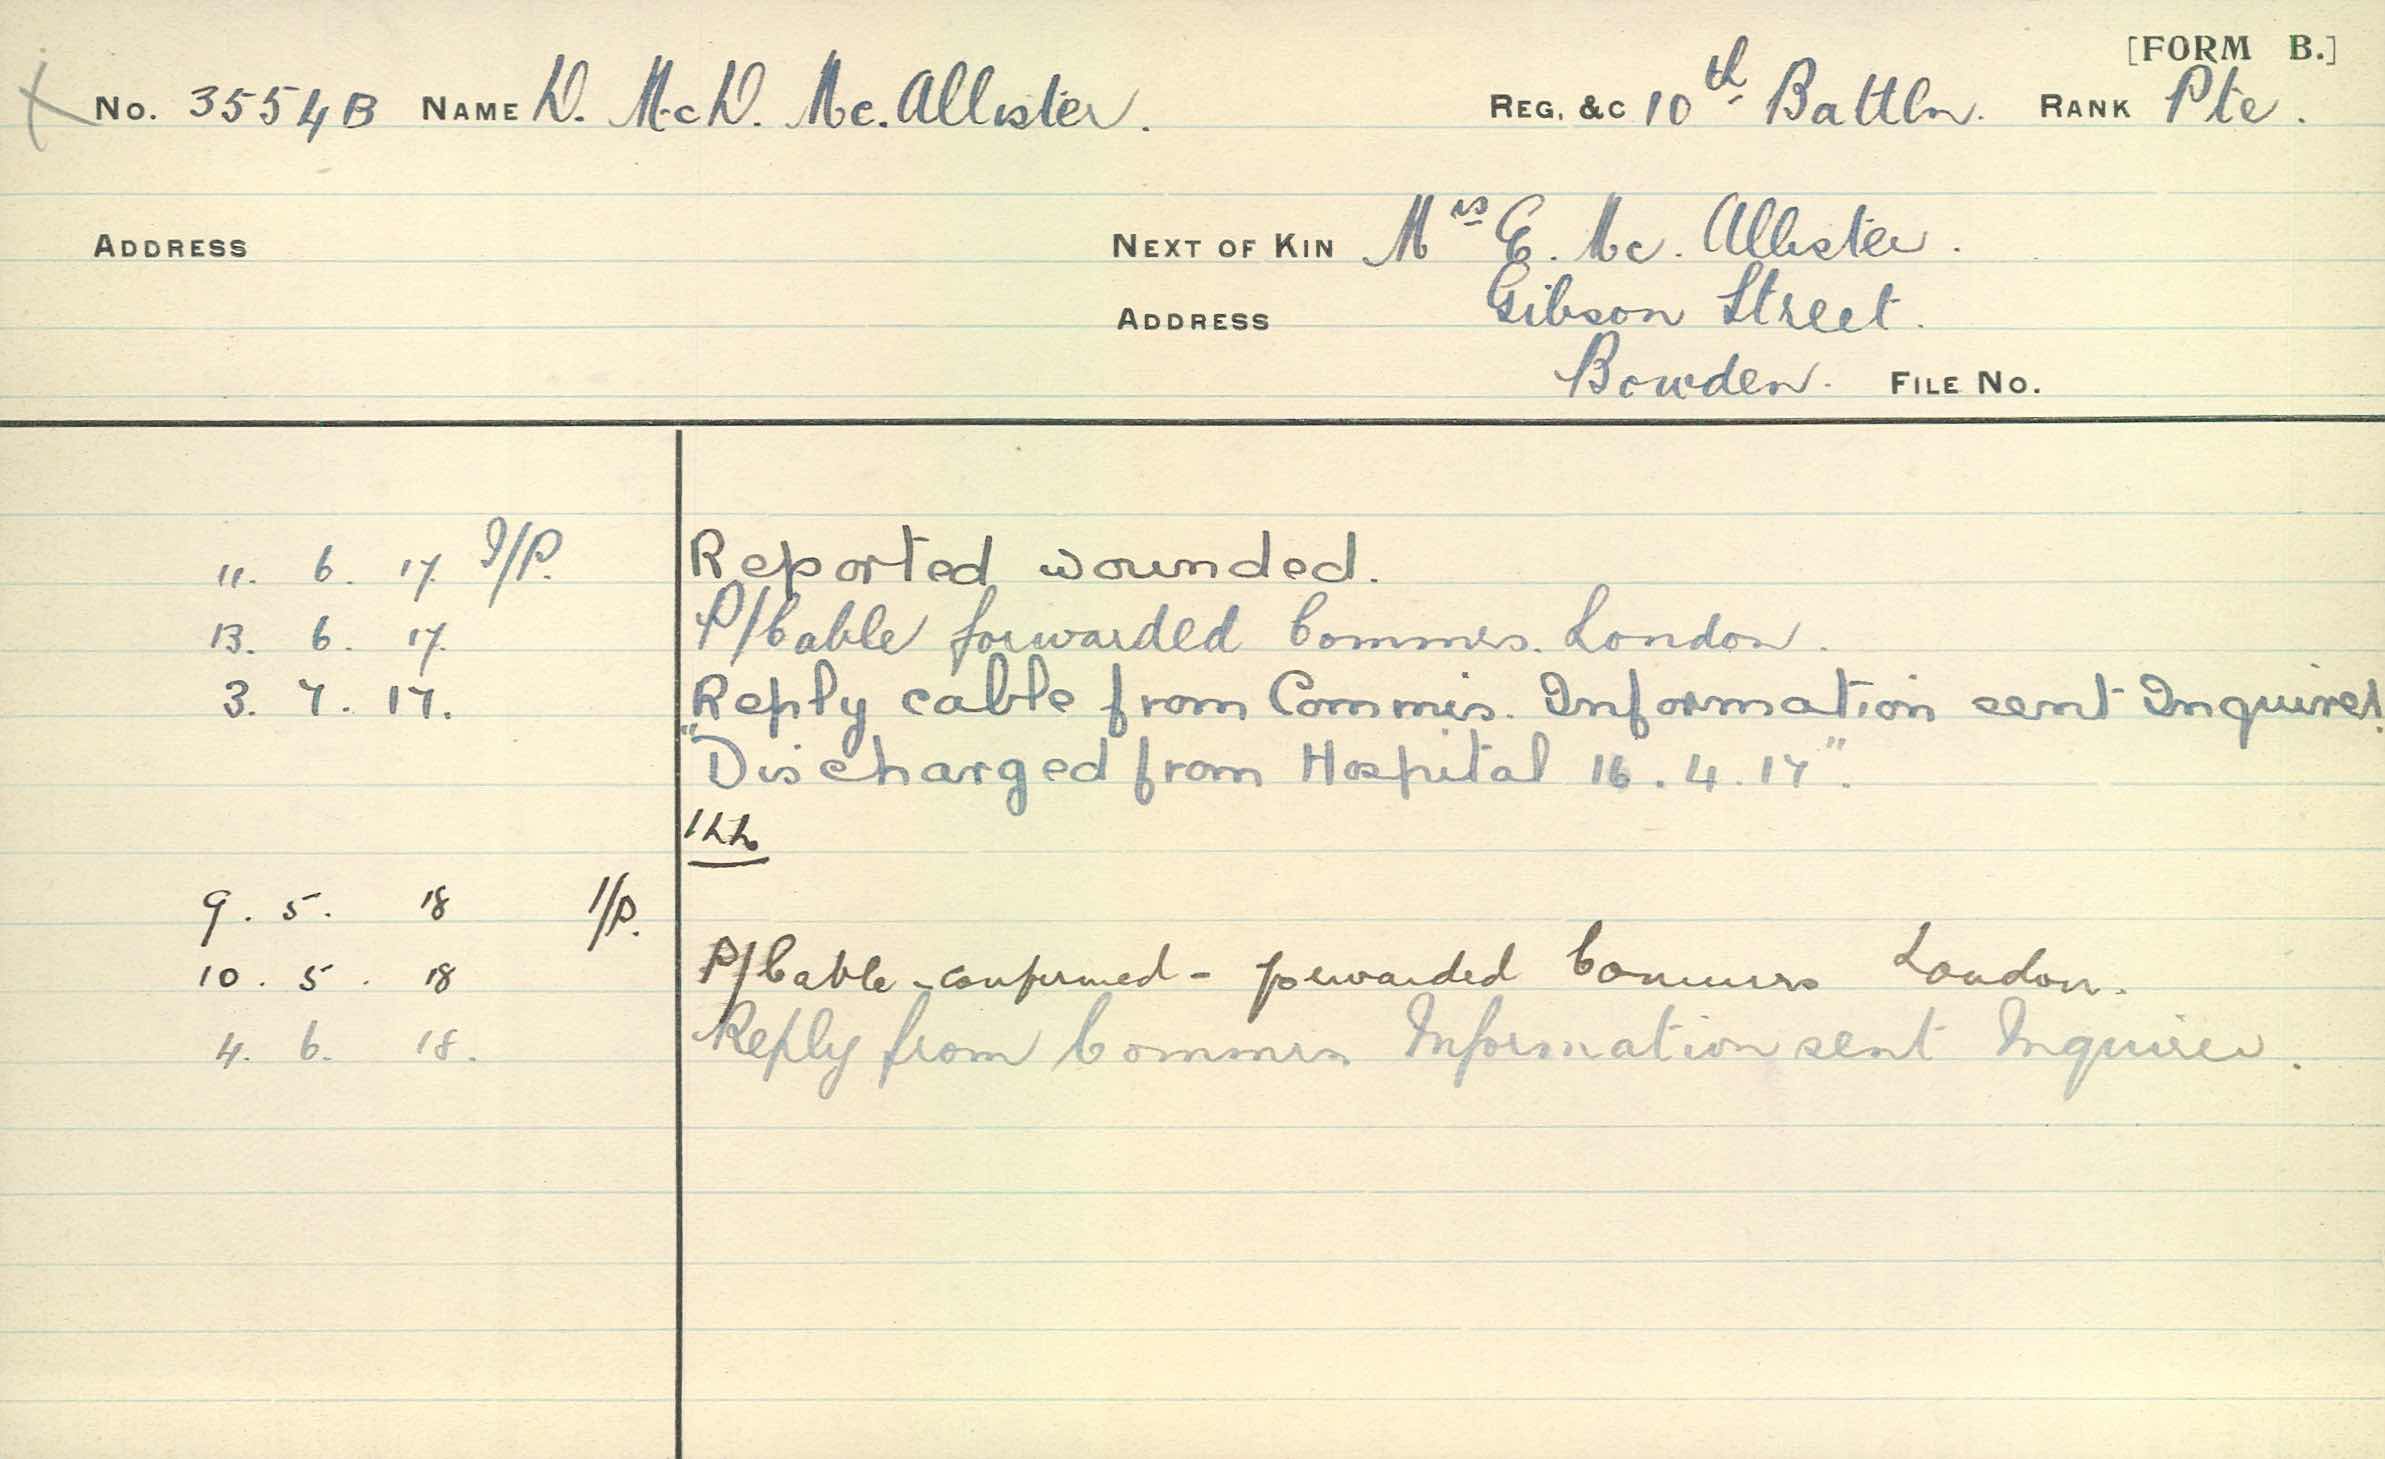 [FORM B.]
No. 3554B NAME D. McD. Mc. Allister. REG. &C 10th Battln. RANK Pte.
ADDRESS NEXT OF KIN Mrs E. Mc. Allister.
ADDRESS Gibson Street.
Bowden. FILE No.
11. 6. 17. I/P. Reported wounded.
13. 6. 17. P/Cable forwarded Commis. London.
3. 7. 17. Reply cable from Commis. Information sent Inquirer.
"Discharged from Hospital 16.4.17".
9. 5. 18 I/P.
10. 5. 18 P/Cable - confirmed - forwarded Commrs London.
4. 6. 18. Reply from Commrs Information sent Inquirer.